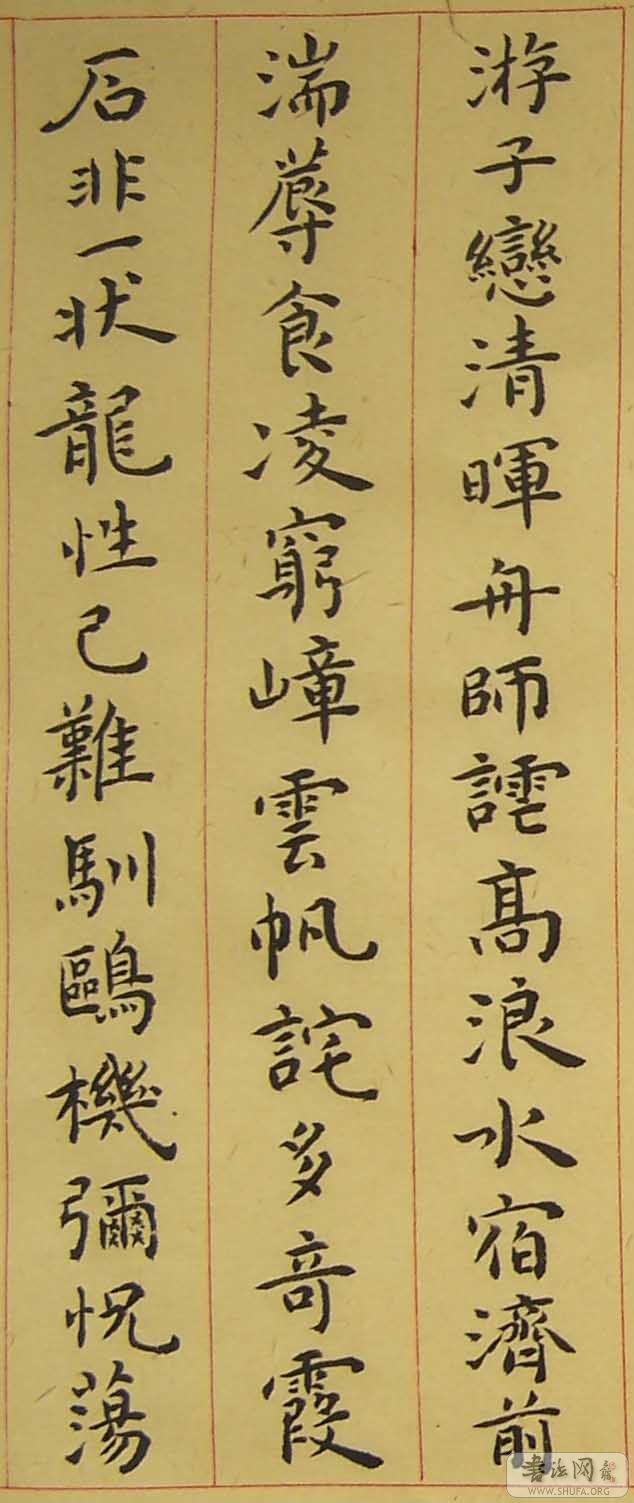 游子戀清暉舟師諕高浪水宿濟前
湍蓐食凌窮嶂雲帆詫多奇霞
石非一状龍性已難馴鷗機彌怳蕩
書法网
WWW.SHUFA.ORG